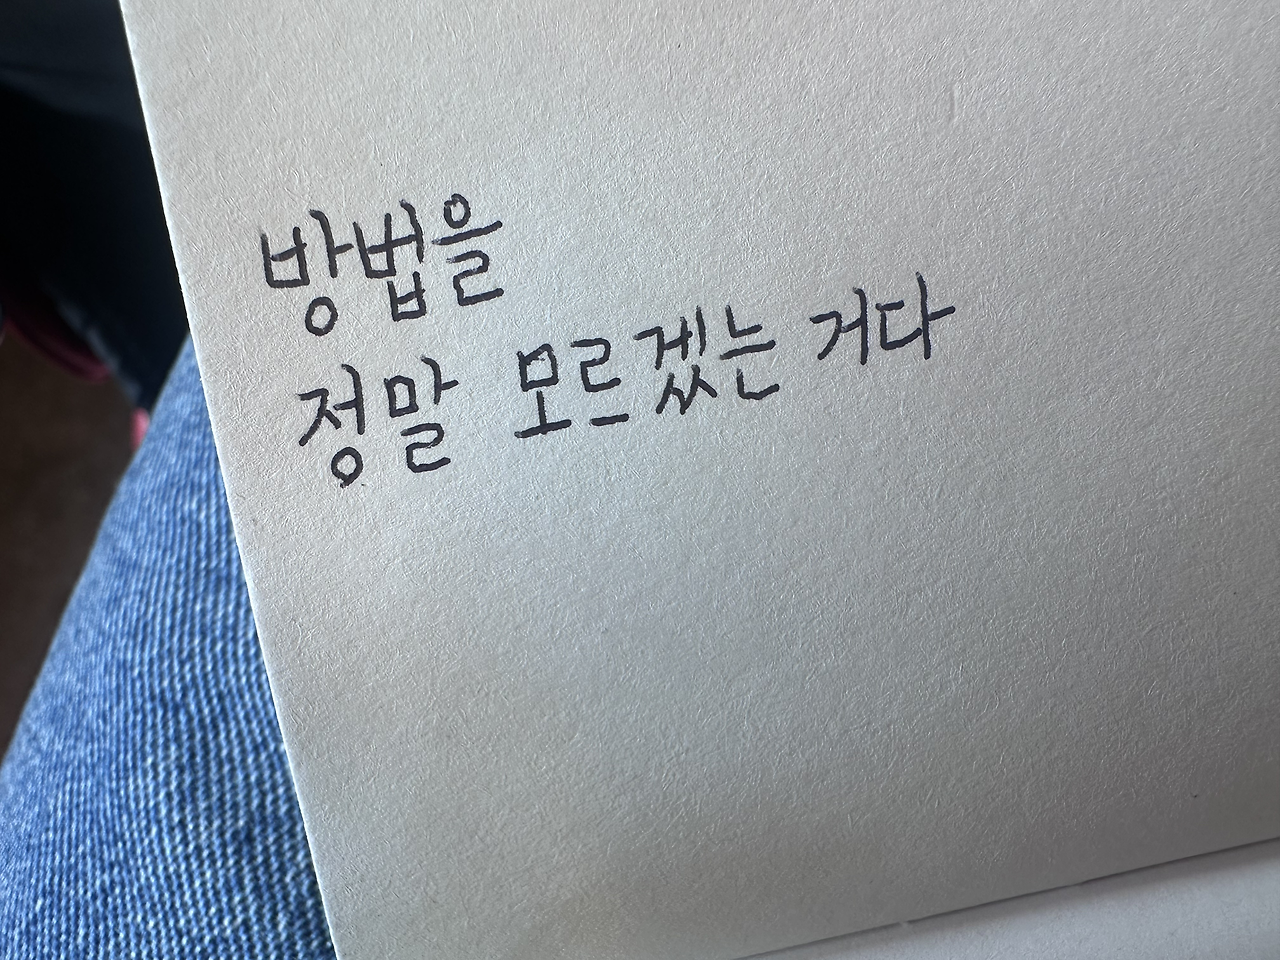 방법을
정말 모르겠는 거다